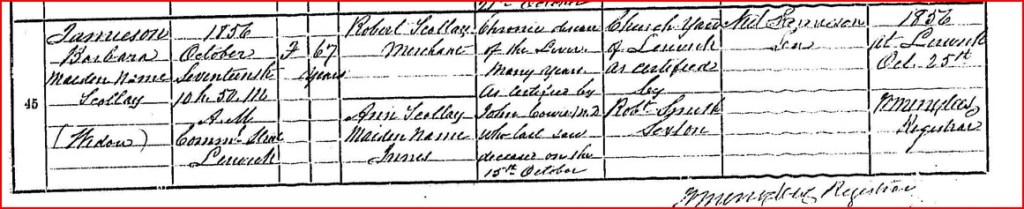 45
Jamieson
Barbara
Maiden Name
Scollay
(Widow)
1856
October
Seventeenth
10 h. 50 M.
A.M.
Comml. Street
Lerwick
F
67
years
Robert Scollay
Merchant
Ann Scollay
Maiden Name
Innes
Chronic disease
of the Liver
Many years
As certified by
John Cowie M.D.
who last saw
deceased on the
15th October
Church Yard
of Lerwick
As certified
by
Robt. Smith
Sexton
Jamieson
Son
1856
At Lerwick
Oct. 25th
Registrar
Registrar